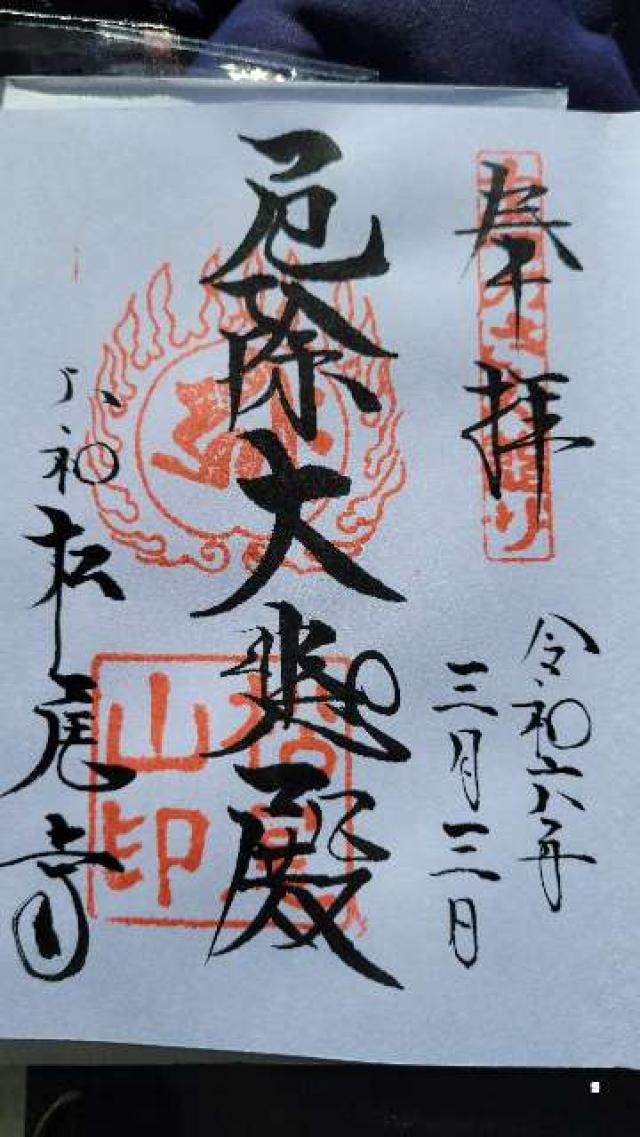 奉拝
令和六年
三月三日
厄除大悲殿
大和松尾寺
山印